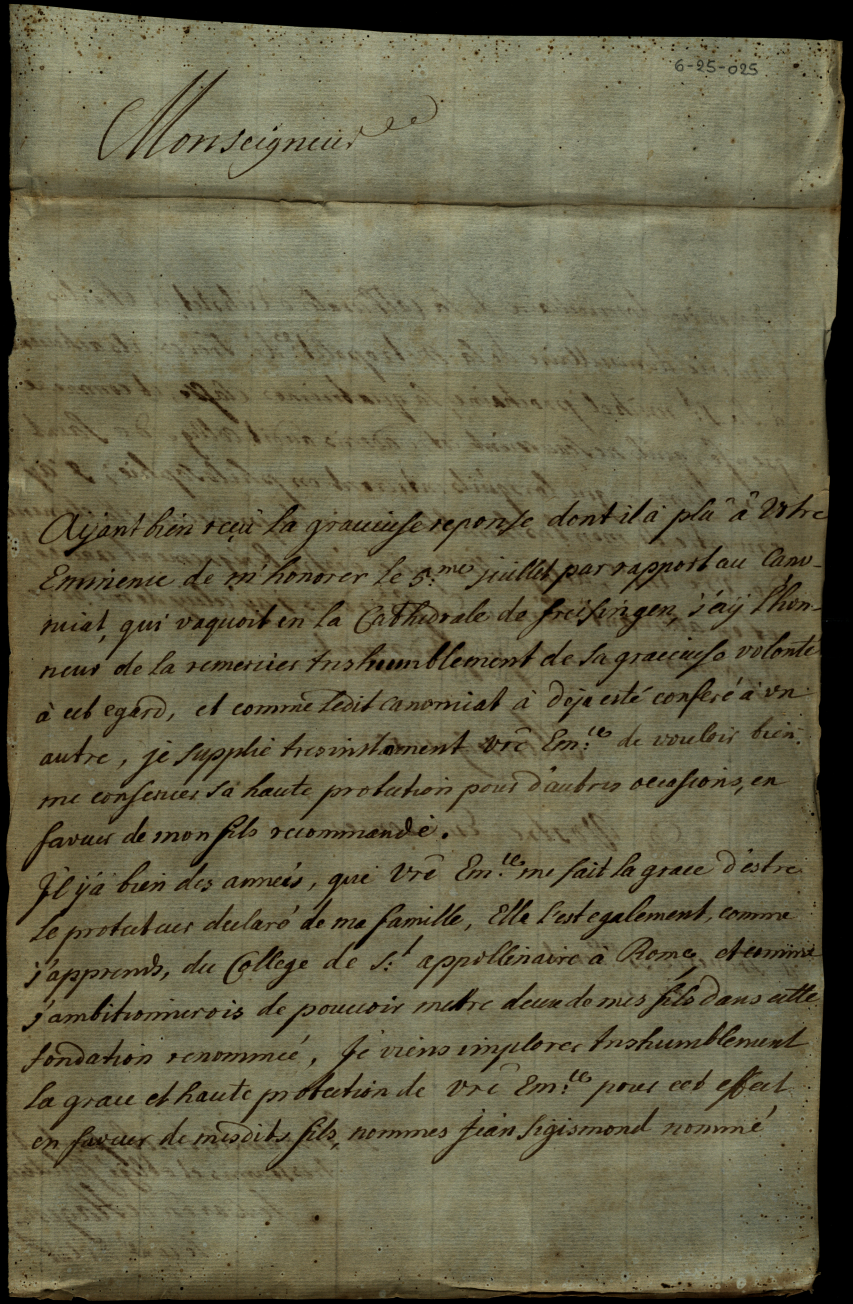 6-25-025
Monseigneur
Ayant bien reçu la gracieuse reponse dont il a plû à Votre
Eminence de m'honorer le 5.mes juillet par rapport au Cano-
nicat, qui vaquoit en la Cathedrale de freisingen, j'aÿ l'hon-
neur de la remercier treshumblement de sa gracieuse volonté
à cet egard, et comme ledit canonicat à deja esté conferé à un
autre, je supplie tresinstament vrê Em:ce de vouloir bien
me conserver sa haute protection pour d'autres occasions, en
faveur de mon fils recommandé.
Jl y a bien des années, que vrê Em:ce me fait la grace d'estre
le protecteur declaré de ma famille, Elle l'est egalement, comme
j'apprends, du College de S:t appollinaire à Rome, et comme
j'ambitionnerois de pouvoir mettre deux de mes fils dans cette
fondation renommée, Je viens implorer treshumblement
la grace et haute protection de vrê Em:ce pour cet effect
en faveur de mesdits fils, nommes Jean Sigismond nommé